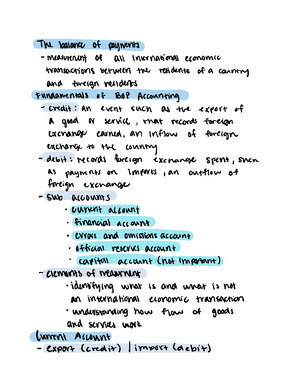 The balance of payments
- measurement of all international economic
transactions between the residents of a country
and foreign residents
Fundamentals of BOP Accounting
- credit: an event such as the export of
a good or service, that records foreign
exchange earned, an inflow of foreign
exchange to the country
- debit: records foreign exchange spent, such
as payments on imports, an outflow of
foreign exchange
- sub accounts
• current account
• financial account
• errors and omissions account
• official reserves account
• capital account (not important)
- elements of measurment
• identifying what is and what is not
an international economic transaction
• understanding how flow of goods
and servies work
Current Account
- export (credit) | import (debit)